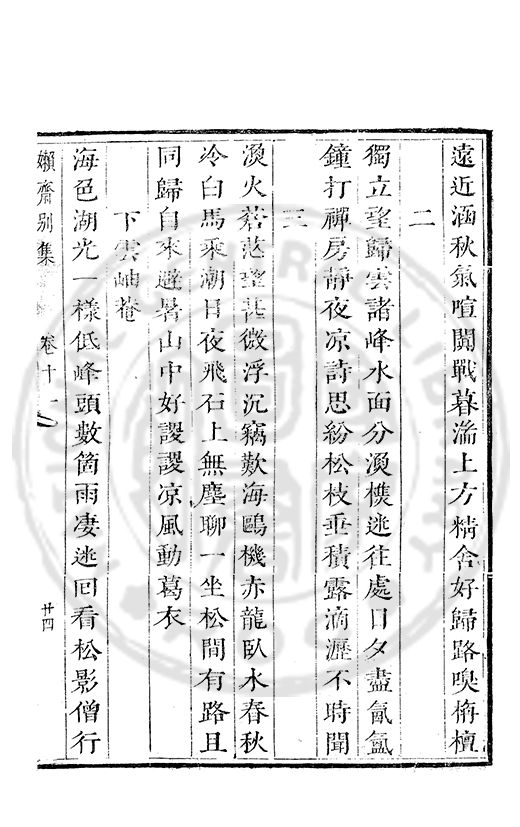 遠近涵秋氣喧闐戰暮濤上方精舍好歸路嗅栴檀
二
獨立望歸雲諸峰水面分漁樵逃往處日夕盡氤氳
鐘打禪房靜夜凉詩思紛松枝垂積露滴瀝不時聞
三
漁火蒼茫望甚微浮沉竊歎海鷗機赤龍臥水春秋
冷白馬乘潮日夜飛石上無塵聊一坐松間有路且
同歸自來避暑山中好謖謖凉風動葛衣
下雲岫菴
海色湖光一樣低峰頭數箇雨凄迷回看松影僧行
嬾齋別集 卷十一 廿四